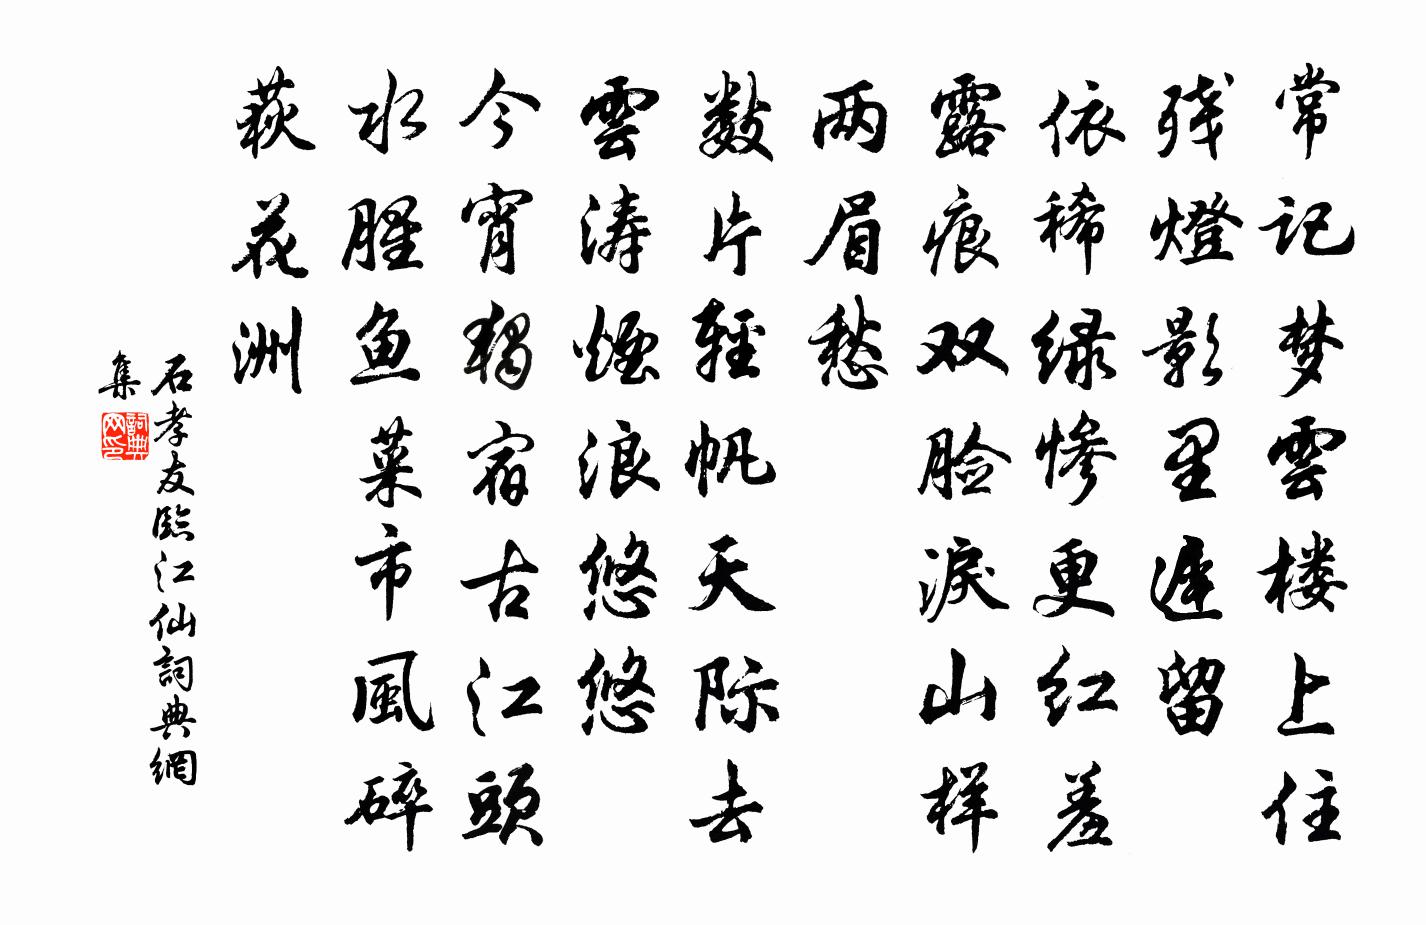 常记梦雲楼上住
残燈影里遲留
依稀绿惨更红羞
露痕双脸淚山样
两眉愁
数片輕帆天际去
雲涛煙浪悠悠
今宵獨宿古江頭
水腥鱼菜市風碎
荻花洲
石孝友臨江仙詞典網
集
詞典
网印